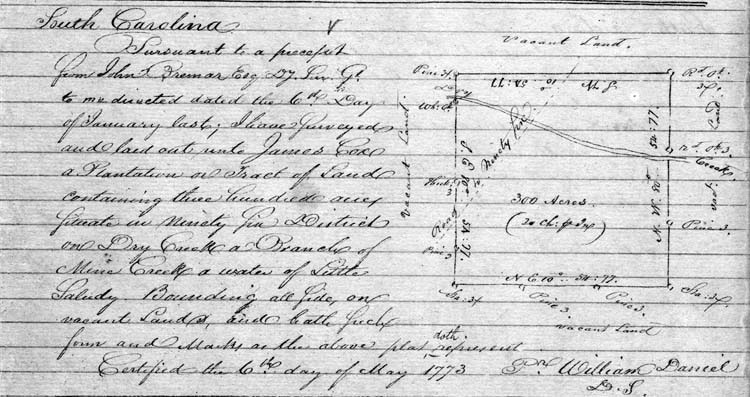 South Carolina
Pursuant to a precept
from John Bremar Esq. D7. Sur. Gl.
to me directed dated the 6th Day
of January last; I have surveyed
and laid out unto James Cox
a Plantation or Tract of Land
containing three hundred acres
situate in Ninety Six District
on Dry Creek a Branch of
Mine Creek a water of Little
Saludy. Bounding all side, on
vacant Lands, and hath such
form and Marks as the above plat doth represent
Certified the 6th day of May 1773
Pr. William Daniel
D. S.
Vacant Land.
Pine 3x
54:77
N
Rd. O.
3x
Dry
Wh. O.
Vacant Land.
Road to Ninety Six
54:77
Land
Rd. O. 3
Creek
300 Acres.
(20 ch: p In)
Hick. 3
54:77.
vat.
Pine 3.
Pine 3
N E 10° 54:77.
3x
3x
Pine 3.
Pine 3.
vacant Land